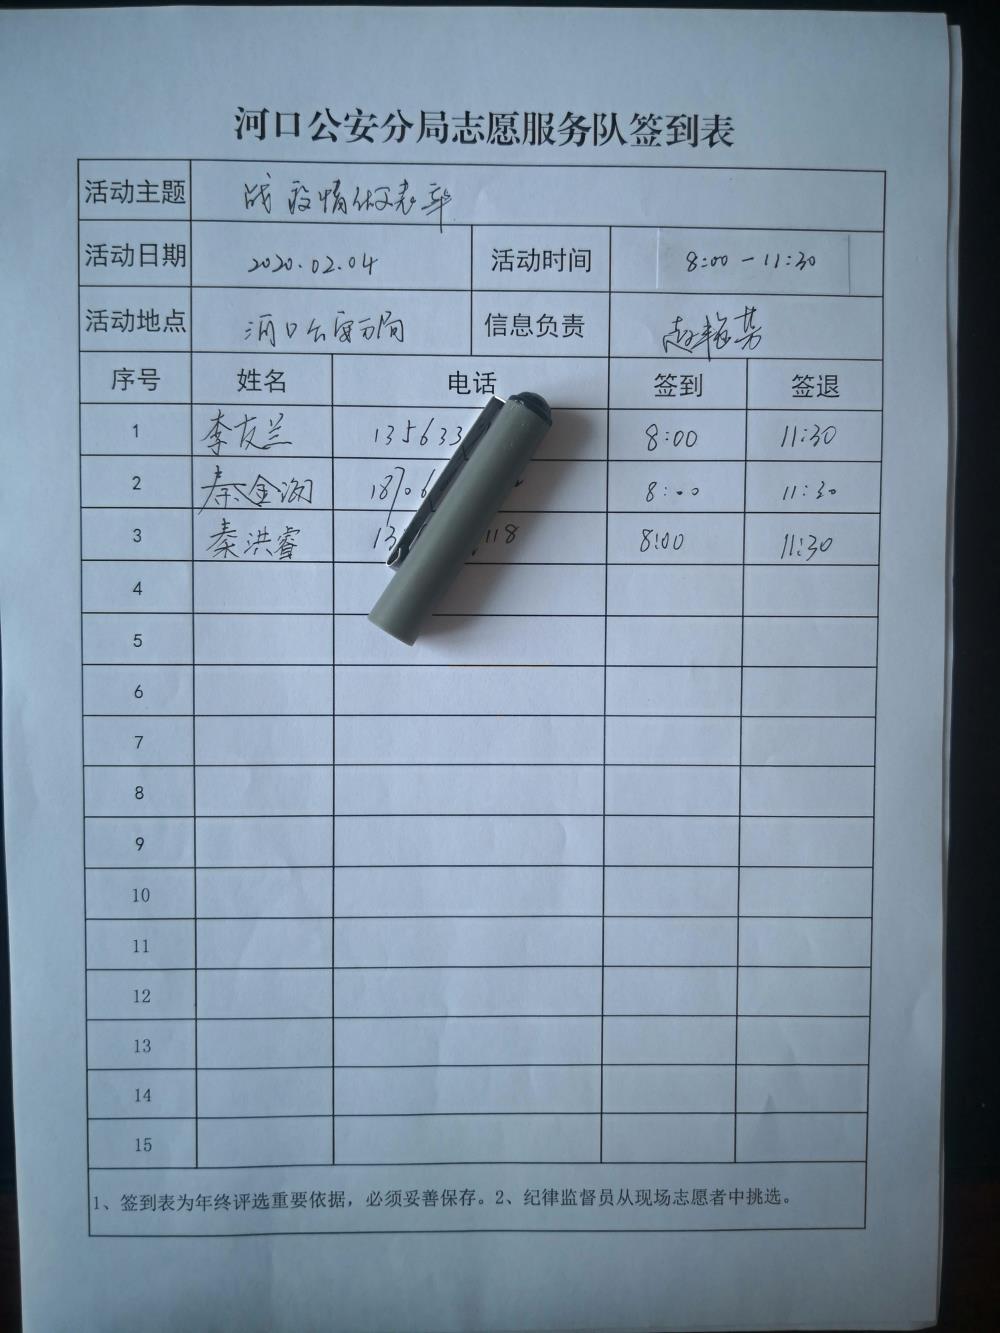 河口公安分局志愿服务队签到表
活动主题 战疫情做表率
活动日期 2020.02.04 活动时间 8:00-11:30
活动地点 河口公安分局 信息负责
序号 姓名 电话 签到 签退
1 李友兰 135633 8:00 11:30
2 秦金海 1870 8:00 11:30
3 秦洪睿 13 118 8:00 11:30
4
5
6
7
8
9
10
11
12
13
14
15
1、签到表为年终评选重要依据，必须妥善保存。2、纪律监督员从现场志愿者中挑选。